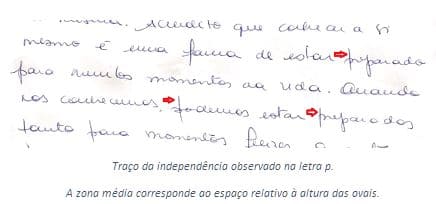 Acredito que conhecer a si
mesmo é uma forma de estar preparado
para muitos momentos da vida. Quando
nos conhecemos, podemos estar preparados
tanto para momentos
Traço da independência observado na letra p.
A zona média corresponde ao espaço relativo à altura das ovais.